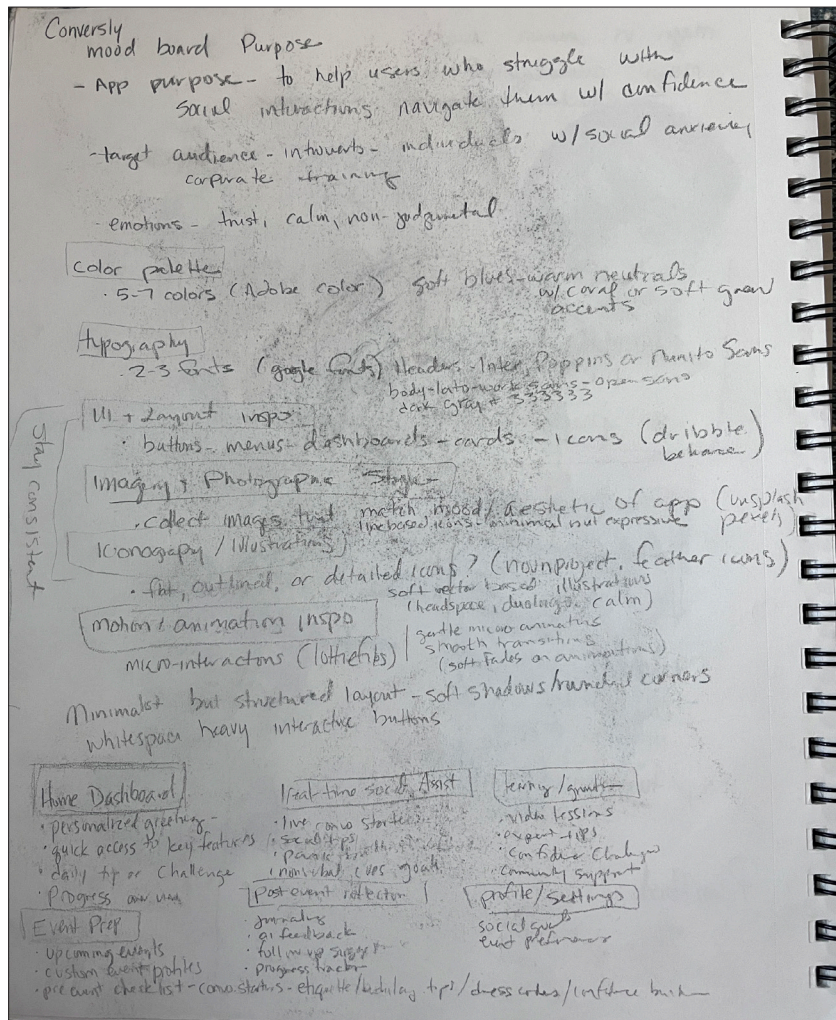 Conversly
mood board Purpose
- App purpose - to help users who struggle with
social interactions navigate them w/ confidence
- target audience - introverts - individuals w/ social anxiety
corporate training
- emotions - trust, calm, non-judgmental
Color palette
• 5-7 colors (Adobe color) soft blues - warm neutrals
w/ coral or soft green
accents
typography
• 2-3 fonts (google fonts) Headers - Inter, Poppins or Nunito Sans
body - lato - work sans - open sans
dark gray # 333333
Stay consistent
UI + Layout inspo
• buttons - menus - dashboards - cards - icons (dribble
behance)
Imagery + Photographic Style
• collect images that match mood/aesthetic of app (unsplash
pexels)
line based icons - minimal but expressive
Iconography / Illustrations
• flat, outlined, or detailed icons? (nounproject, feather icons)
soft vector based illustrations
(headspace, duolingo, calm)
motion + animation inspo
micro-interactions (lottiefiles)
gentle micro animations
smooth transitions
(soft fades on animations)
Minimalist but structured layout - soft shadows/rounded corners
whitespace heavy interactive buttons
Home Dashboard
• personalized greeting -
• quick access to key features
• daily tip or challenge
• Progress
Event Prep
• upcoming events
• custom event profiles
• pre event checklist - convo starters - etiquette / body lang tips / dress codes / confidence
Real-time Social Assist
• live convo starters
• social tips
nonverbal cues goals
Post event reflection
• journaling
• ai feedback
• follow up
• progress tracker
• video lessons
• expert tips
• confidence challenges
• community support
profile/settings
social goals
event preferences